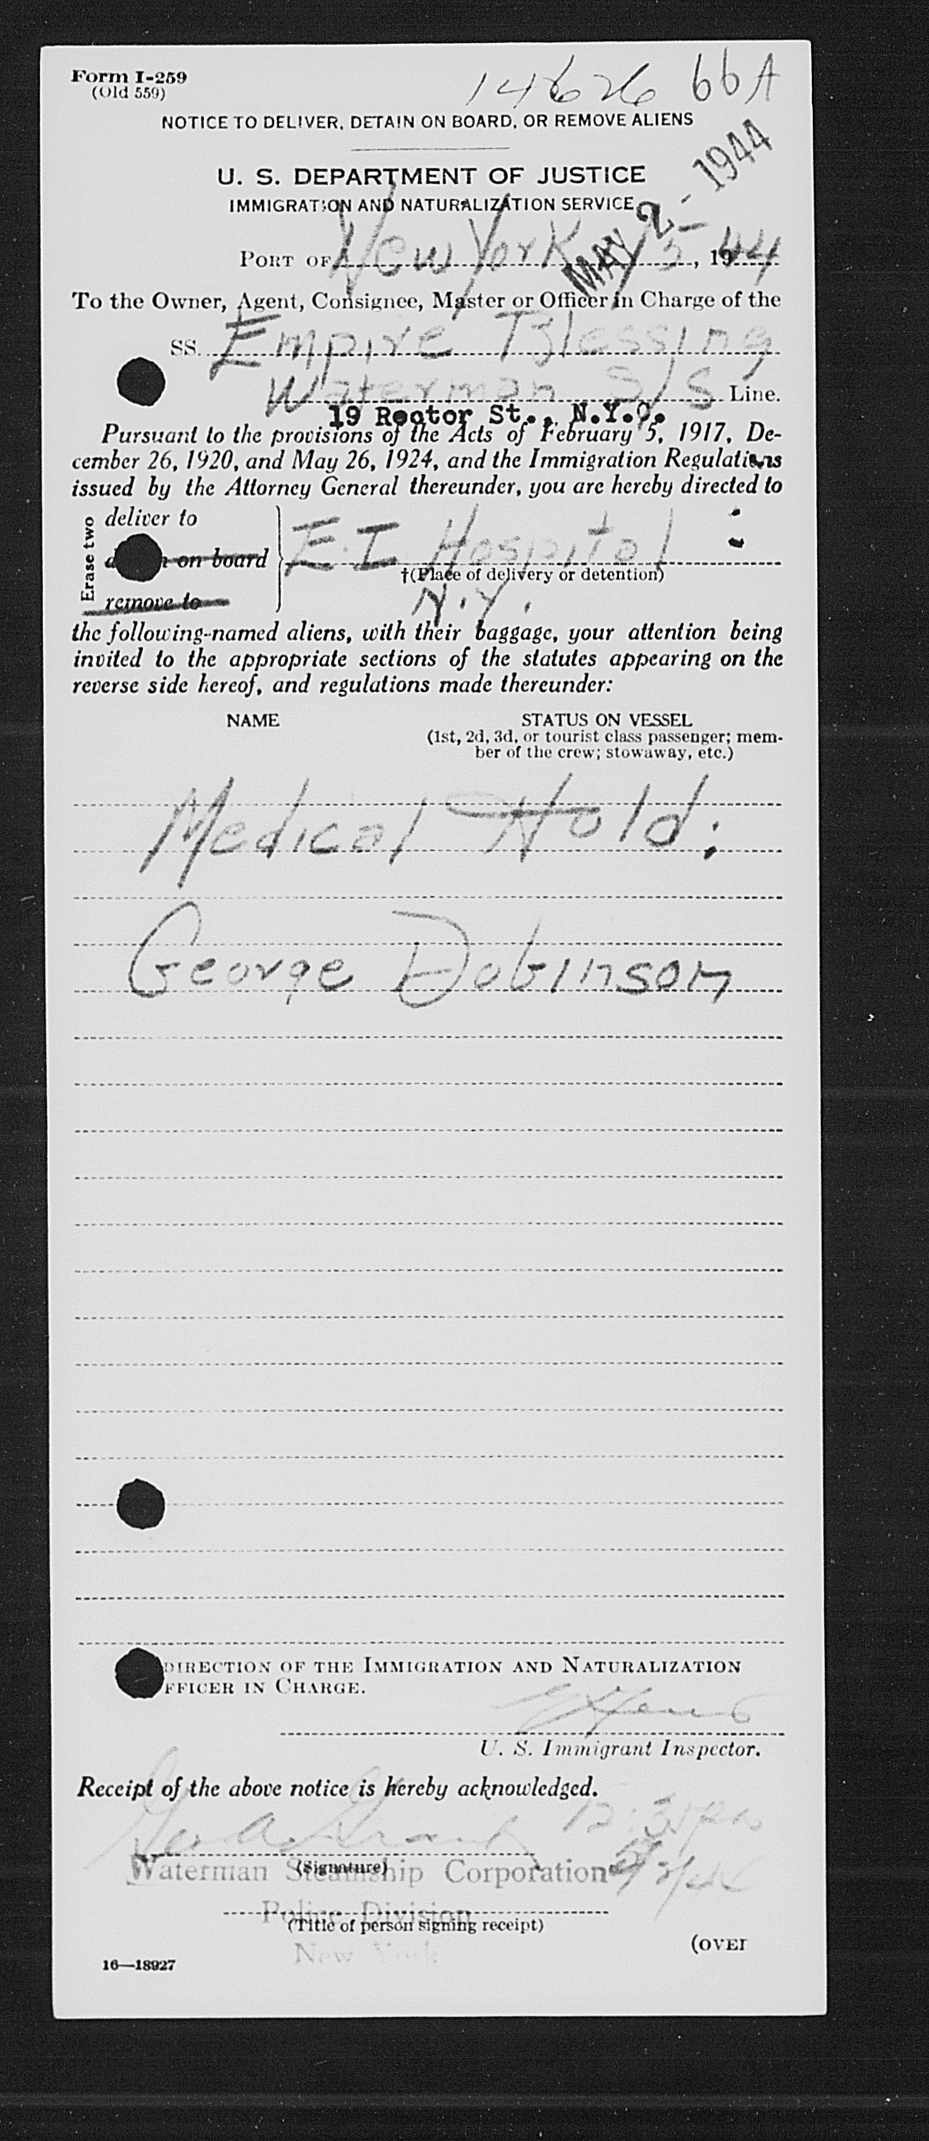 Form I-259
(Old 559)
14626 66A
NOTICE TO DELIVER, DETAIN ON BOARD, OR REMOVE ALIENS
U. S. DEPARTMENT OF JUSTICE
IMMIGRATION AND NATURALIZATION SERVICE
MAY 2 - 1944
PORT OF New York 1944
To the Owner, Agent, Consignee, Master or Officer in Charge of the
SS. Empire Blessing
Waterman S/S Line.
19 Rector St., N.Y.C.
Pursuant to the provisions of the Acts of February 5, 1917, De-
cember 26, 1920, and May 26, 1924, and the Immigration Regulations
issued by the Attorney General thereunder, you are hereby directed to
Erase two
deliver to
on board
remove to
E.I. Hospital
†(Place of delivery or detention)
N.Y.
the following-named aliens, with their baggage, your attention being
invited to the appropriate sections of the statutes appearing on the
reverse side hereof, and regulations made thereunder:
NAME STATUS ON VESSEL
(1st, 2d, 3d, or tourist class passenger; mem-
ber of the crew; stowaway, etc.)
Medical Hold:
George Dobinson
DIRECTION OF THE IMMIGRATION AND NATURALIZATION
FFICER IN CHARGE.
U. S. Immigrant Inspector.
Receipt of the above notice is hereby acknowledged.
(Signature)
Waterman Steamship Corporation
Police Division
(Title of person signing receipt)
New York
16—18927
(OVER